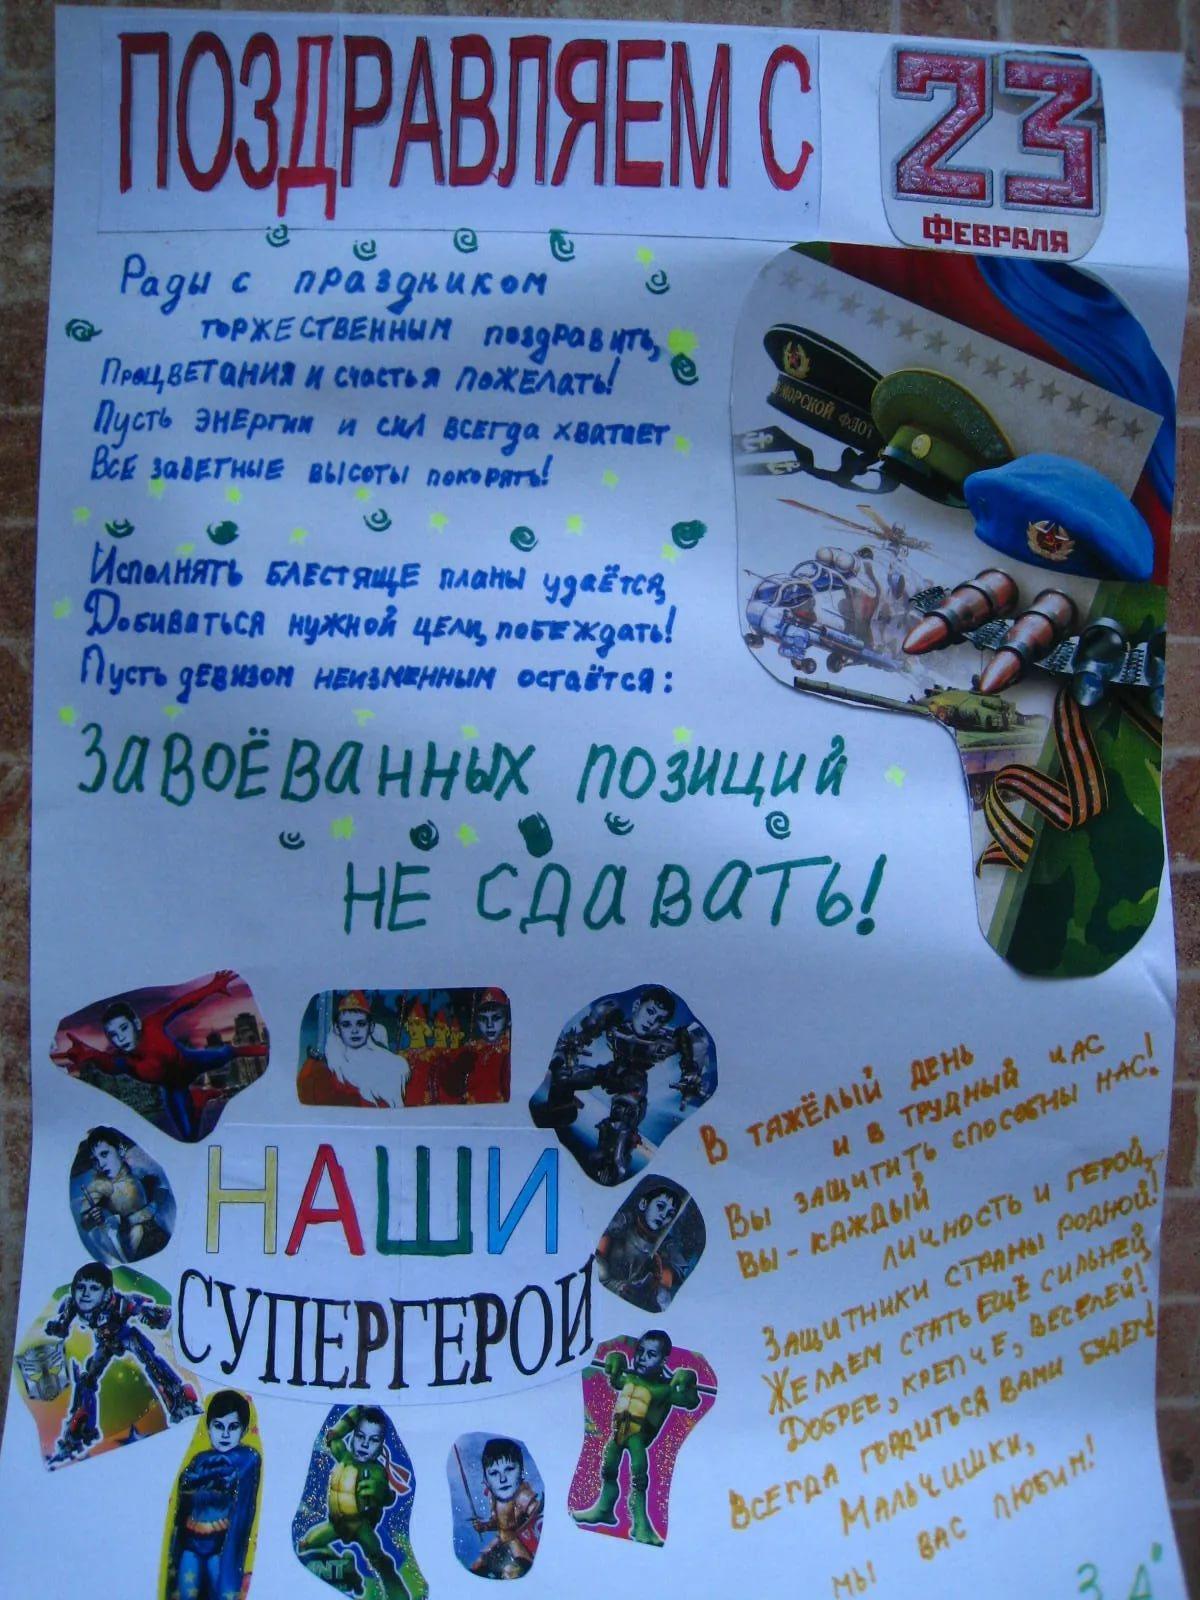 ПОЗДРАВЛЯЕМ С
23
ФЕВРАЛЯ
Рады с праздником
торжественным поздравить,
Процветания и счастья пожелать!
Пусть энергии и сил всегда хватает
Все заветные высоты покорять!
МОРСКОЙ ФЛОТ
Исполнять блестяще планы удаётся,
Добиваться нужной цели, побеждать!
Пусть девизом неизменным остаётся:
ЗАВОЁВАННЫХ ПОЗИЦИЙ
НЕ СДАВАТЬ!
НАШИ
СУПЕРГЕРОИ
В тяжёлый день
и в трудный час
Вы защитить способны нас!
Вы - каждый
личность и герой,
Защитники страны родной!
Желаем стать ещё сильней,
Добрее, крепче, веселей!
Всегда гордиться вами будем!
Мальчишки,
мы вас любим!
3 А